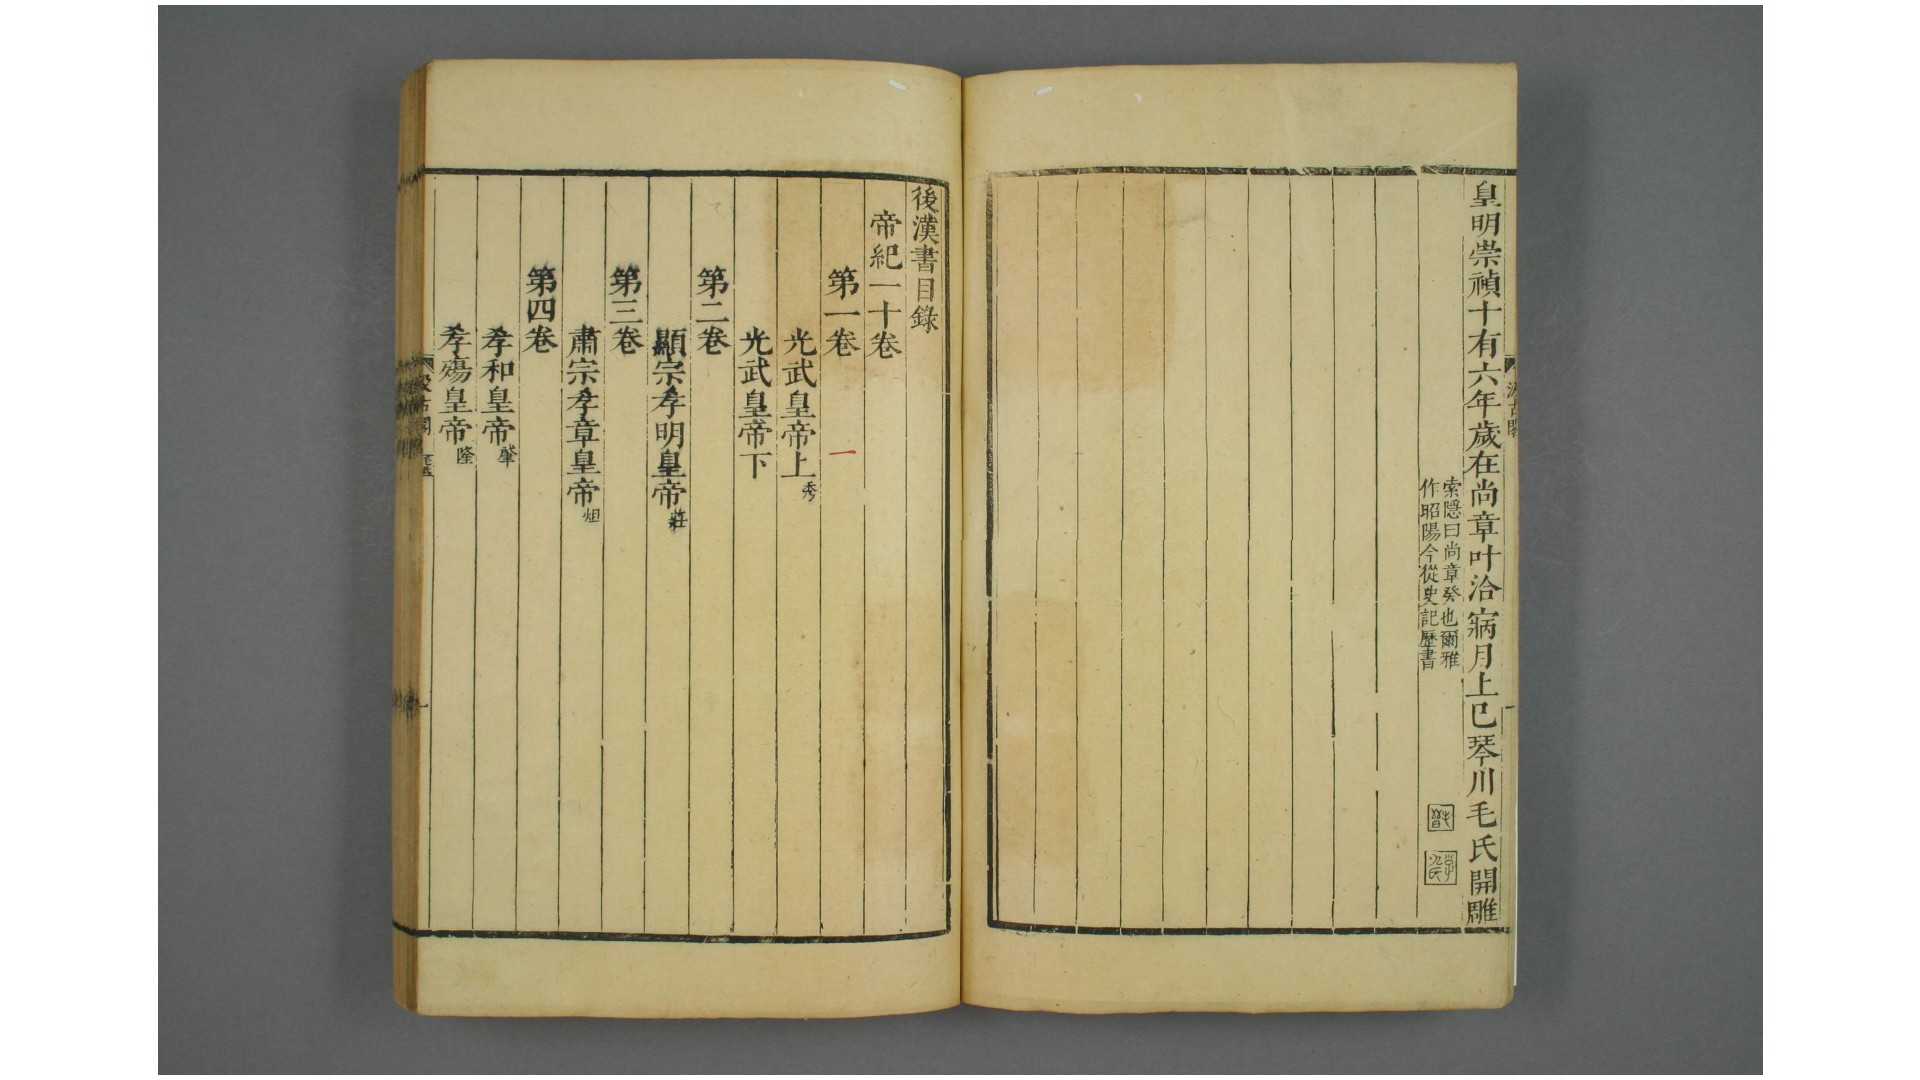 皇明崇禎十有六年歲在尚章叶洽寎月上巳琴川毛氏開雕
索隱曰尚章癸也爾雅
作昭陽今從史記歷書
汲古閣
後漢書目錄
帝紀一十卷
第一卷
一
光武皇帝上秀
光武皇帝下
第二卷
顯宗孝明皇帝莊
第三卷
肅宗孝章皇帝炟
第四卷
孝和皇帝肇
孝殤皇帝隆
汲古閣
一